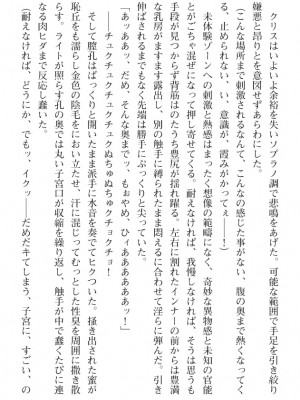 クリスはいよいよ余裕を失いソプラノ調で悲鳴をあげた。可能な範囲で手足を引き絞り
嫌悪と昂りとを意図せずあらわにした。
(こんな場所まで刺激されるなんて、こんなの感じた事がない、腹の奥まで熱くなってく
る、止められない、い 意識が、霞みがかってぇ――！)
未体験ゾーンへの刺激と熱感はまったく想像の範疇になく、奇妙な異物感と未知の官能
とがごちゃ混ぜになって押し寄せてくる。耐えなければ、我慢しなければ、そうは思うも
手段が見つからず背筋はのたうち豊尻が揺れ躍る。左右に割れたインナーの前からは豊満
な乳房がますます露出し、別の触手に縛られたまま悶えるに合わせて淫らに弾んだ。引き
伸ばされるまでもなく先端は勝手にぷっくりと尖っていた。
「あっ、ああっ、だめ、そんな奥までっ、もぉやめ、ひぃああああぁっ！」
――チュクチュクチュクチュクぬちゅぬちゅクチュクチョ！
そして膣孔はぱっくりと開いたまま派手に水音を奏でてヒクついた。掻き出された蜜が
恥丘をも濡らし金色の陰毛をにおい立たせ、汗に混じってむっとした性臭を周囲に撒き散
らす。ライトが照らす孔の奥では丸い子宮口が収縮を繰り返し、触手が中で蠢くたびに連
なる肉ヒダまで反応し蠢いた。
(耐えなければ、どうにか、でもッ、イクッ――だめだキてしまう、子宮に、すごい、の